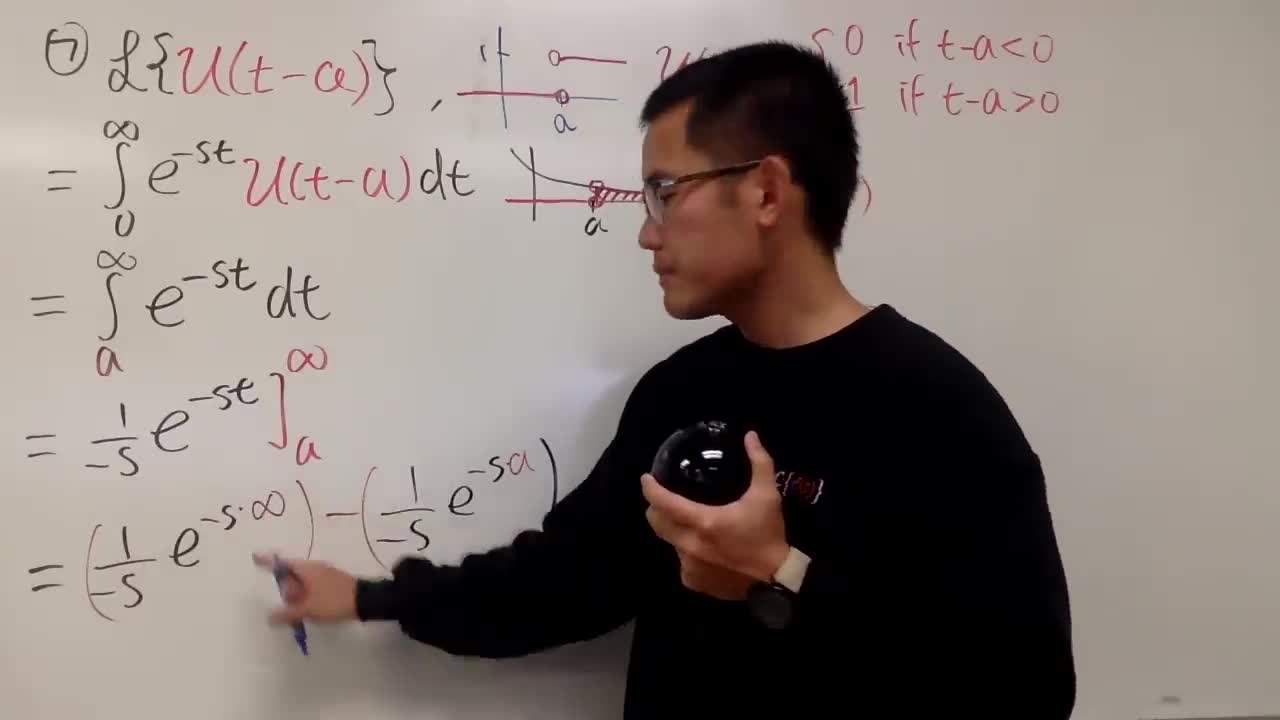 ⑦ ℒ{u(t-a)} , 1 a u 0 if t-a<0
1 if t-a>0
= ∫₀^∞ e^{-st} u(t-a) dt a )
= ∫ₐ^∞ e^{-st} dt
= 1/-s e^{-st} ]ₐ^∞
= (1/-s e^{-s·∞}) - (1/-s e^{-sa})